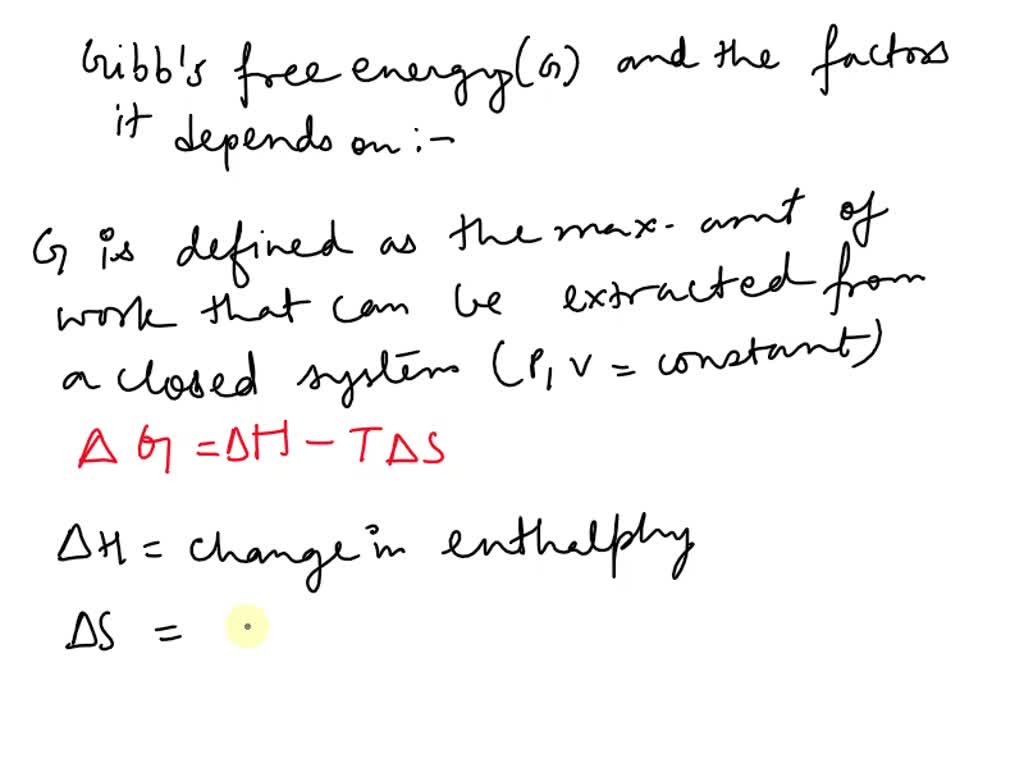 Gibb's free energy (G) and the factors
it depends on :-
G is defined as the max. amt of
work that can be extracted from
a closed system (P, V = constant)
Δ G = ΔH - TΔS
ΔH = change in enthalphy
ΔS =